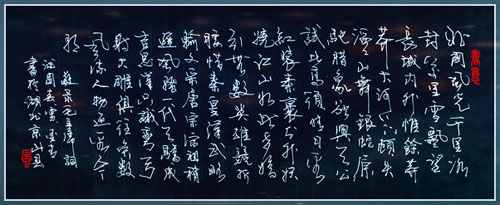 北国风光千里冰
封万里雪飘望
长城内外惟余莽
莽大河上下顿失
滔滔山舞银蛇原
驰蜡象欲与天公
试比高须晴日看
红装素裹分外妖
娆江山如此多娇
引无数英雄竞折
腰惜秦皇汉武略
输文采唐宗宋祖稍
逊风骚一代天骄成
吉思汗只识弯弓
射大雕俱往矣数
风流人物还看今
朝
敬录毛泽东词
沁园春雪
书于湖北京山